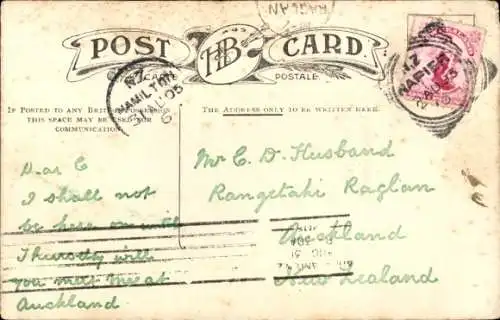 POST HB CARD
CARTE POSTALE.
N.Z.
HAMILTON
05
RAGLAN
NAPIER
IF POSTED TO ANY BRITISH POSSESSION
THIS SPACE MAY BE USED FOR
COMMUNICATION.
THE ADDRESS ONLY TO BE WRITTEN HERE.
Dear C
I shall not
be here until
Thursday will
you meet me at
Auckland
Mr C. D. Husband
Rangitaki Raglan
Auckland
New Zealand